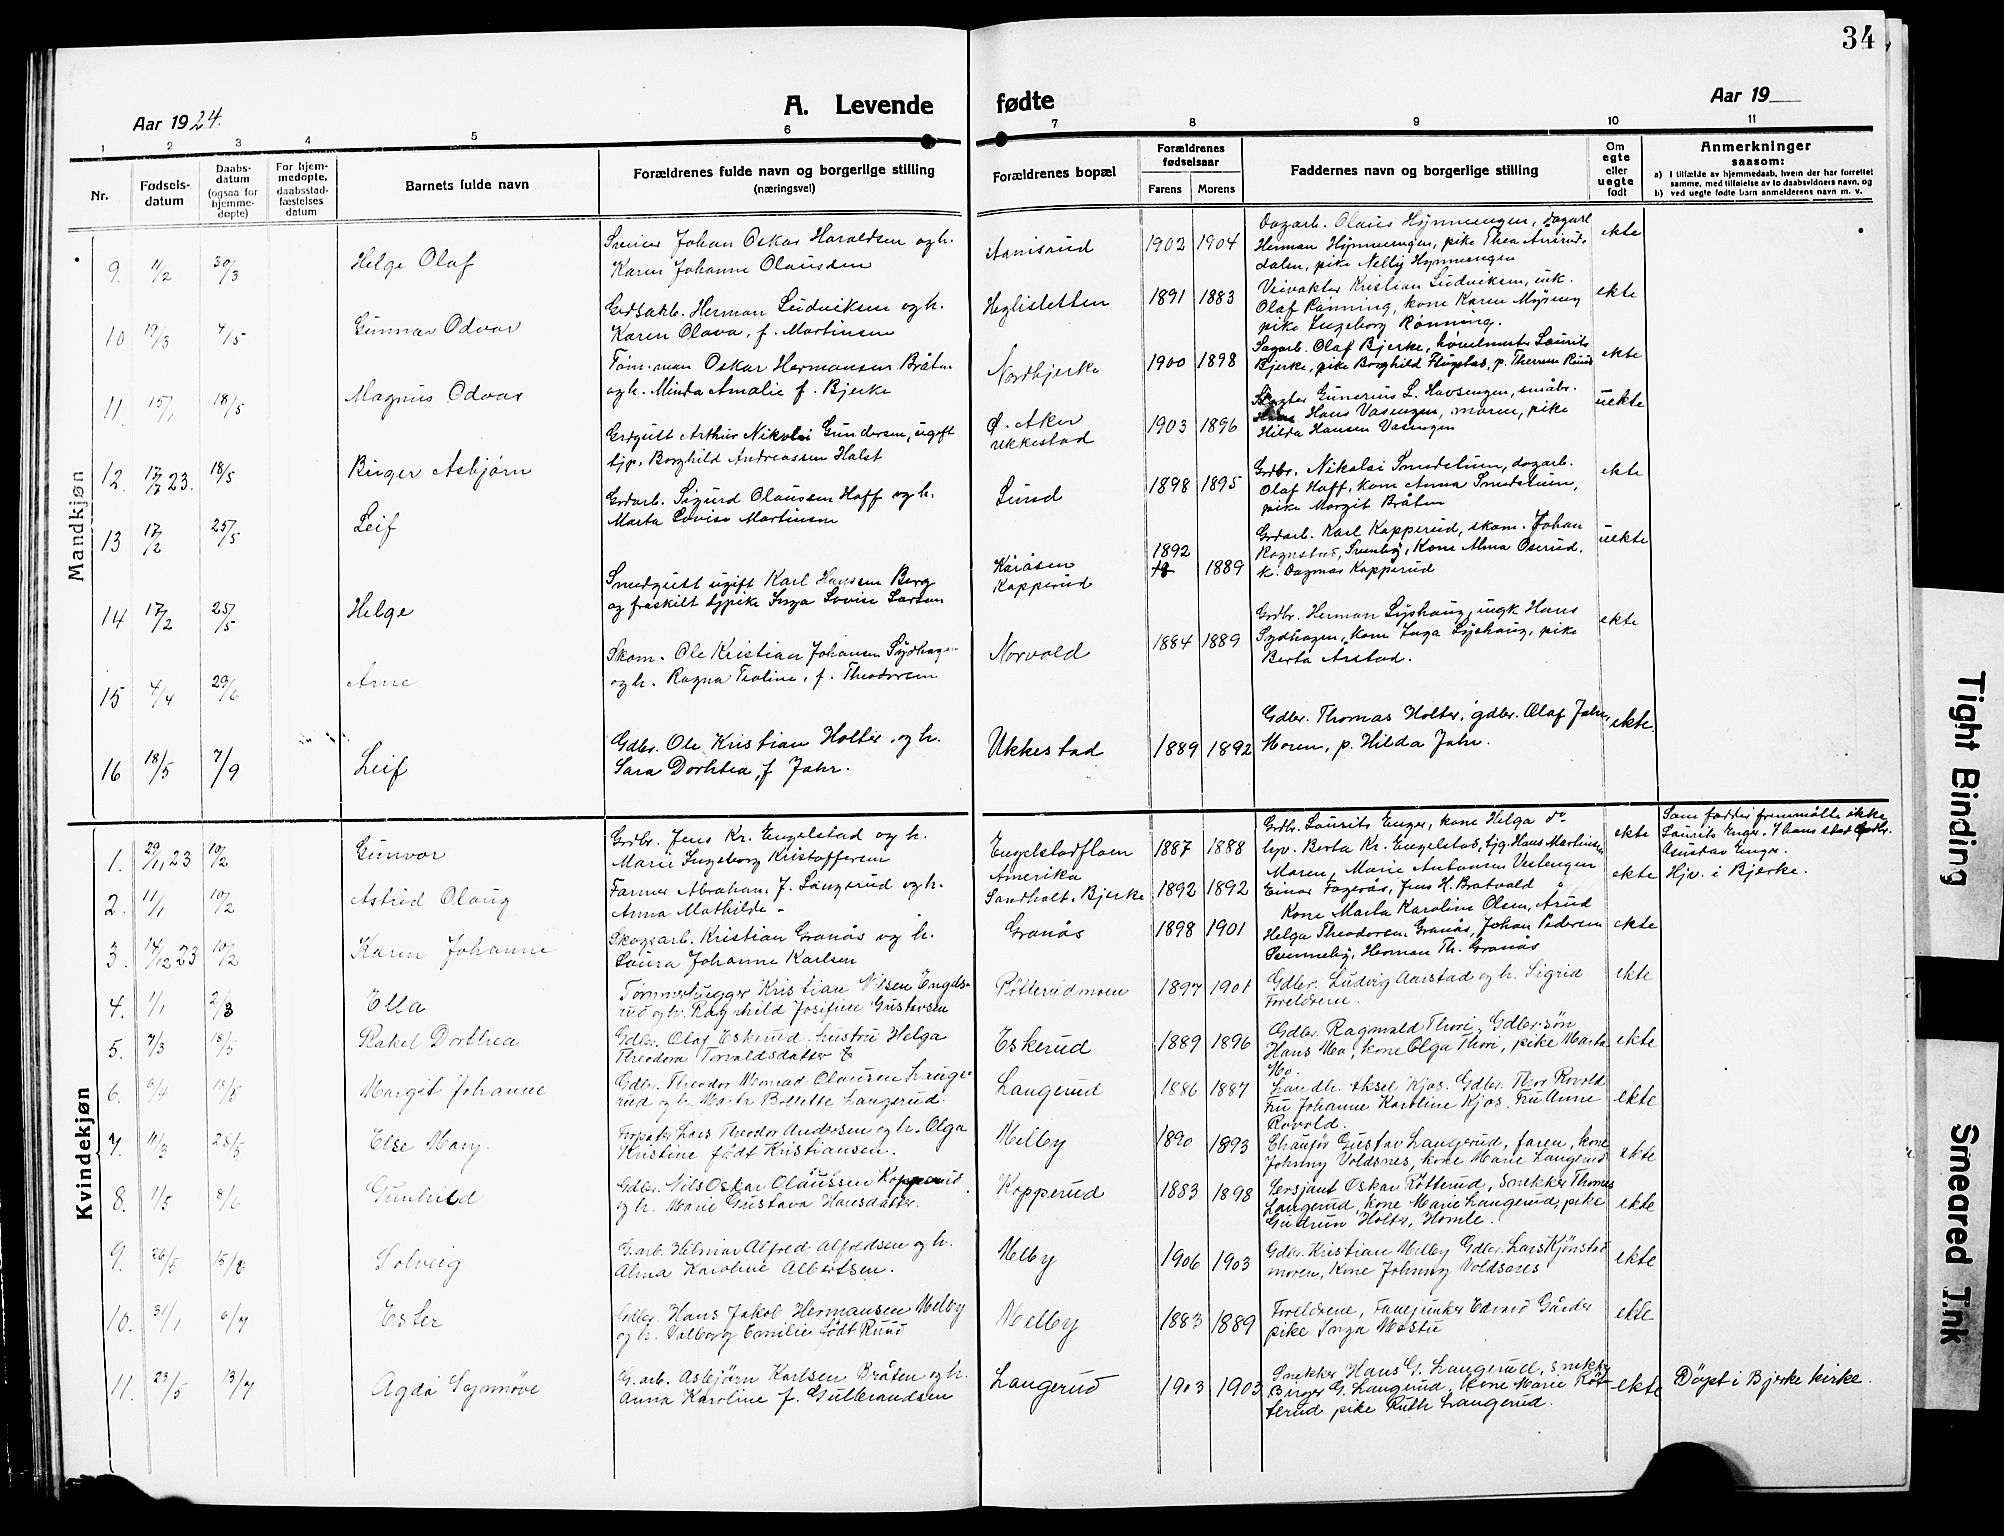 34
Aar 1924.
A. Levende fødte
Aar 19
1 2 3 4 5 6 7 8 9 10 11
Nr.
Fødsels-
datum
Daabs-
datum
(ogsaa for
hjemme-
døpte)
For hjem-
medøpte,
daabsstad-
fæstelses
datum
Barnets fulde navn
Forældrenes fulde navn og borgerlige stilling
(næringsvei)
Forældrenes bopæl
Forældrenes
fødselsaar
Farens Morens
Faddernes navn og borgerlige stilling
Om
egte
eller
uegte
født
Anmerkninger
saasom:
a) I tilfælde av hjemmedaab, hvem der har forrettet
samme, med tilføielse av to daabsvidners navn, og
b) ved uegte fødte barn anmelderens navn m. v.
Mandkjøn
9. 11/2 30/3 Helge Olaf
Johan Oskar Haraldsen og h.
Karen Johanne Olausden
1902 1904
Dagarb. Olaus Hynnengen, dagarb.
Herman Hynnengen, pike Thea
dalen, pike Nelly Hynnengen
ekte
10 19/3 4/5 Gunnar Odvar
Herman Ludviksen og h.
Karen Olava, f. Martinsen
Heglisletten
1891 1883
Veivokter Kristian Ludviksen, enk.
Olaf Rønning, kone Karen
pike Ingeborg Rønning.
ekte
11. 15/1 18/5 Magnus Odvar
Tøm.man Oskar Hermansen Bråten
og h. Minda Amalie f. Bjerke
Nordbjerke
1900 1898
Sagarb. Olaf Bjerke, Laurits
Bjerke, pike Borghild p. Therese Ruud
ekte
12. 17/7 23. 18/5 Birger Asbjørn
Grdgutt Arthur Nikolai Gundersen, ugift
tjp. Borghild Andreassen Holst
Ø. Aker
Ukkestad
1903 1896
Gunerius L. Havsengen, småbr.
Hans Vasengen, moren, pike
Hilda Hansen Vasengen
uekte
13 17/2 25/5 Leif
Grdarb. Sigurd Olaussen Hoff og h.
Marta Lovise Martinsen
Lund
1898 1895
Grdbr. Nikolai Smedstuen, dagarb.
Olaf Hoff, kone Anna Smedstuen,
pike Margit Bråten
ekte
14 17/2 25/5 Helge
Smedgutt ugift Karl Hanssen Berg
og fraskilt tjpike Inga Lovise Larsen
Kåråsen
Kopperud
1892 1889
Grdarb. Karl Kopperud, skom. Johan
Rognstad, Svenby, Kone Alma Oserud,
k. Dagmar Kopperud
uekte
15 4/4 29/6 Arne
Skom. Ole Kristian Johansen Sydhagen
og h. Ragna Teoline, f. Theodorsen
Norvold
1884 1889
Grdbr. Herman Lyshaug, ungk Hans
Sydhagen, kone Inga Lyshaug, pike
Berta Arstad.
ekte
16 18/5 7/9 Leif
Gdbr. Ole Kristian Holter og h.
Sara Dorthea, f Jahr.
Ukkestad
1889 1892
Gdbr. Thomas Holter, gdbr. Olaf Jahr,
Moren, p. Hilda Jahr.
ekte.
Kvindekjøn
1. 29/11 23 10/2 Gunvor
Grdbr. Jens Kr. Engelstad og h.
Marie Ingeborg Kristoffersen
Engelstadfloen
1887 1888
Grdbr. Laurits Enger, kone Helga do
Berta Kr. Engelstad, tjg. Hans Martinsen
ekte
Som fadder fremmøtte ikke
Laurits Enger. I hans sted Grdbr.
Gustav Enger.
2. 11/1 10/2 Astrid Olaug
Farmer Abraham J. Langerud og h.
Anna Mathilde
Amerika
Sandholt, Bjerke
1892 1892
Maren, Marie Antonsen Vestengen
Einar Fagerås, Jens H. Bratvold
ekte
Hjv. i Bjerke.
3. 14/12 23 10/2 Karen Johanne
Skogsarb. Kristian Granås og h.
Laura Johanne Karlsen
Granås
1898 1901
Kone Marta Karoline Olsen, Årud
Helga Theodorsen Granås, Johan Pedersen
Svenneby, Herman Th. Granås
ekte
4. 1/1 2/3 Ella
Tømmerhugger Kristian Nilsen Engels-
rud og h. Ragnhild Josefine Gustavsen
Røtterudmoen
1897 1901
Gdbr. Ludvig Aarstad og h. Sigrid
Foreldrene.
ekte
5. 7/3 18/5 Rakel Dorthea
Gdbr. Olaf Eskerud. hustru Helga
Theodora Torvaldsdatter
Eskerud
1889 1896
Gdbr. Ragnvald Thori, Gdbr.søn
Hans Mo, kone Olga Thori, pike Marta
Mo.
ekte
6. 6/4 18/5 Margit Johanne
Gdbr. Theodor Monrad Olausen Lange-
rud og h. Marta Bollette Langerud.
Langerud
1886 1887
Landh. Aksel Kjos. Gdbr. Thor Rovold
Fru Johanne Karoline Kjos. Fru Anne
Rovold.
ekte
7. 11/3 28/5 Else Mary.
Forpakter Lars Theodor Andersen og h. Olga
Kristine født Kristiansen.
Melby
1890 1893
Chaufør Gustav Langerud, faren, kone
Johnny Voldsnes, kone Marie Langerud
ekte
8. 1/5 8/6 Gunhild
Gdbr. Nils Oskar Olaussen Kopperud.
og h. Marie Gustava Hansdatter.
Kopperud
1883 1898
Sersjant Oskar Røtterud, snekker Thomas
Langerud, kone Marie Langerud, pike
Gudrun Holter, Homle.
ekte
9. 26/5 15/8 Solveig
G.arb. Hilmar Alfred Alfredsen og h.
Alma Karoline Albertsen.
Melby
1906 1903
Gdbr. Kristian Melby Gdbr. Lars Kjønstad
moren, Kone Johnny Voldsnes
ekte
10. 31/1 6/7 Ester
Gdbr. Hans Jakob Hermansen Melby
og h. Valborg Emilie født Ruud
Melby
1883 1889
Foreldrene, Fanejunker Edvard Gårder
pike Inga Mostu
ekte
11. 23/5 13/7 Agda Synnøve
G. arb. Asbjørn Karlsen Bråten og h.
Anna Karoline f. Gulbrandsen
Langerud
1903 1903
Snekker Hans G. Langerud, snekker
Birger G. Langerud, kone Marie Røt-
terud pike Ruth Langerud.
ekte
Døpt i Bjerke kirke.
Tight Binding
Smeared Ink